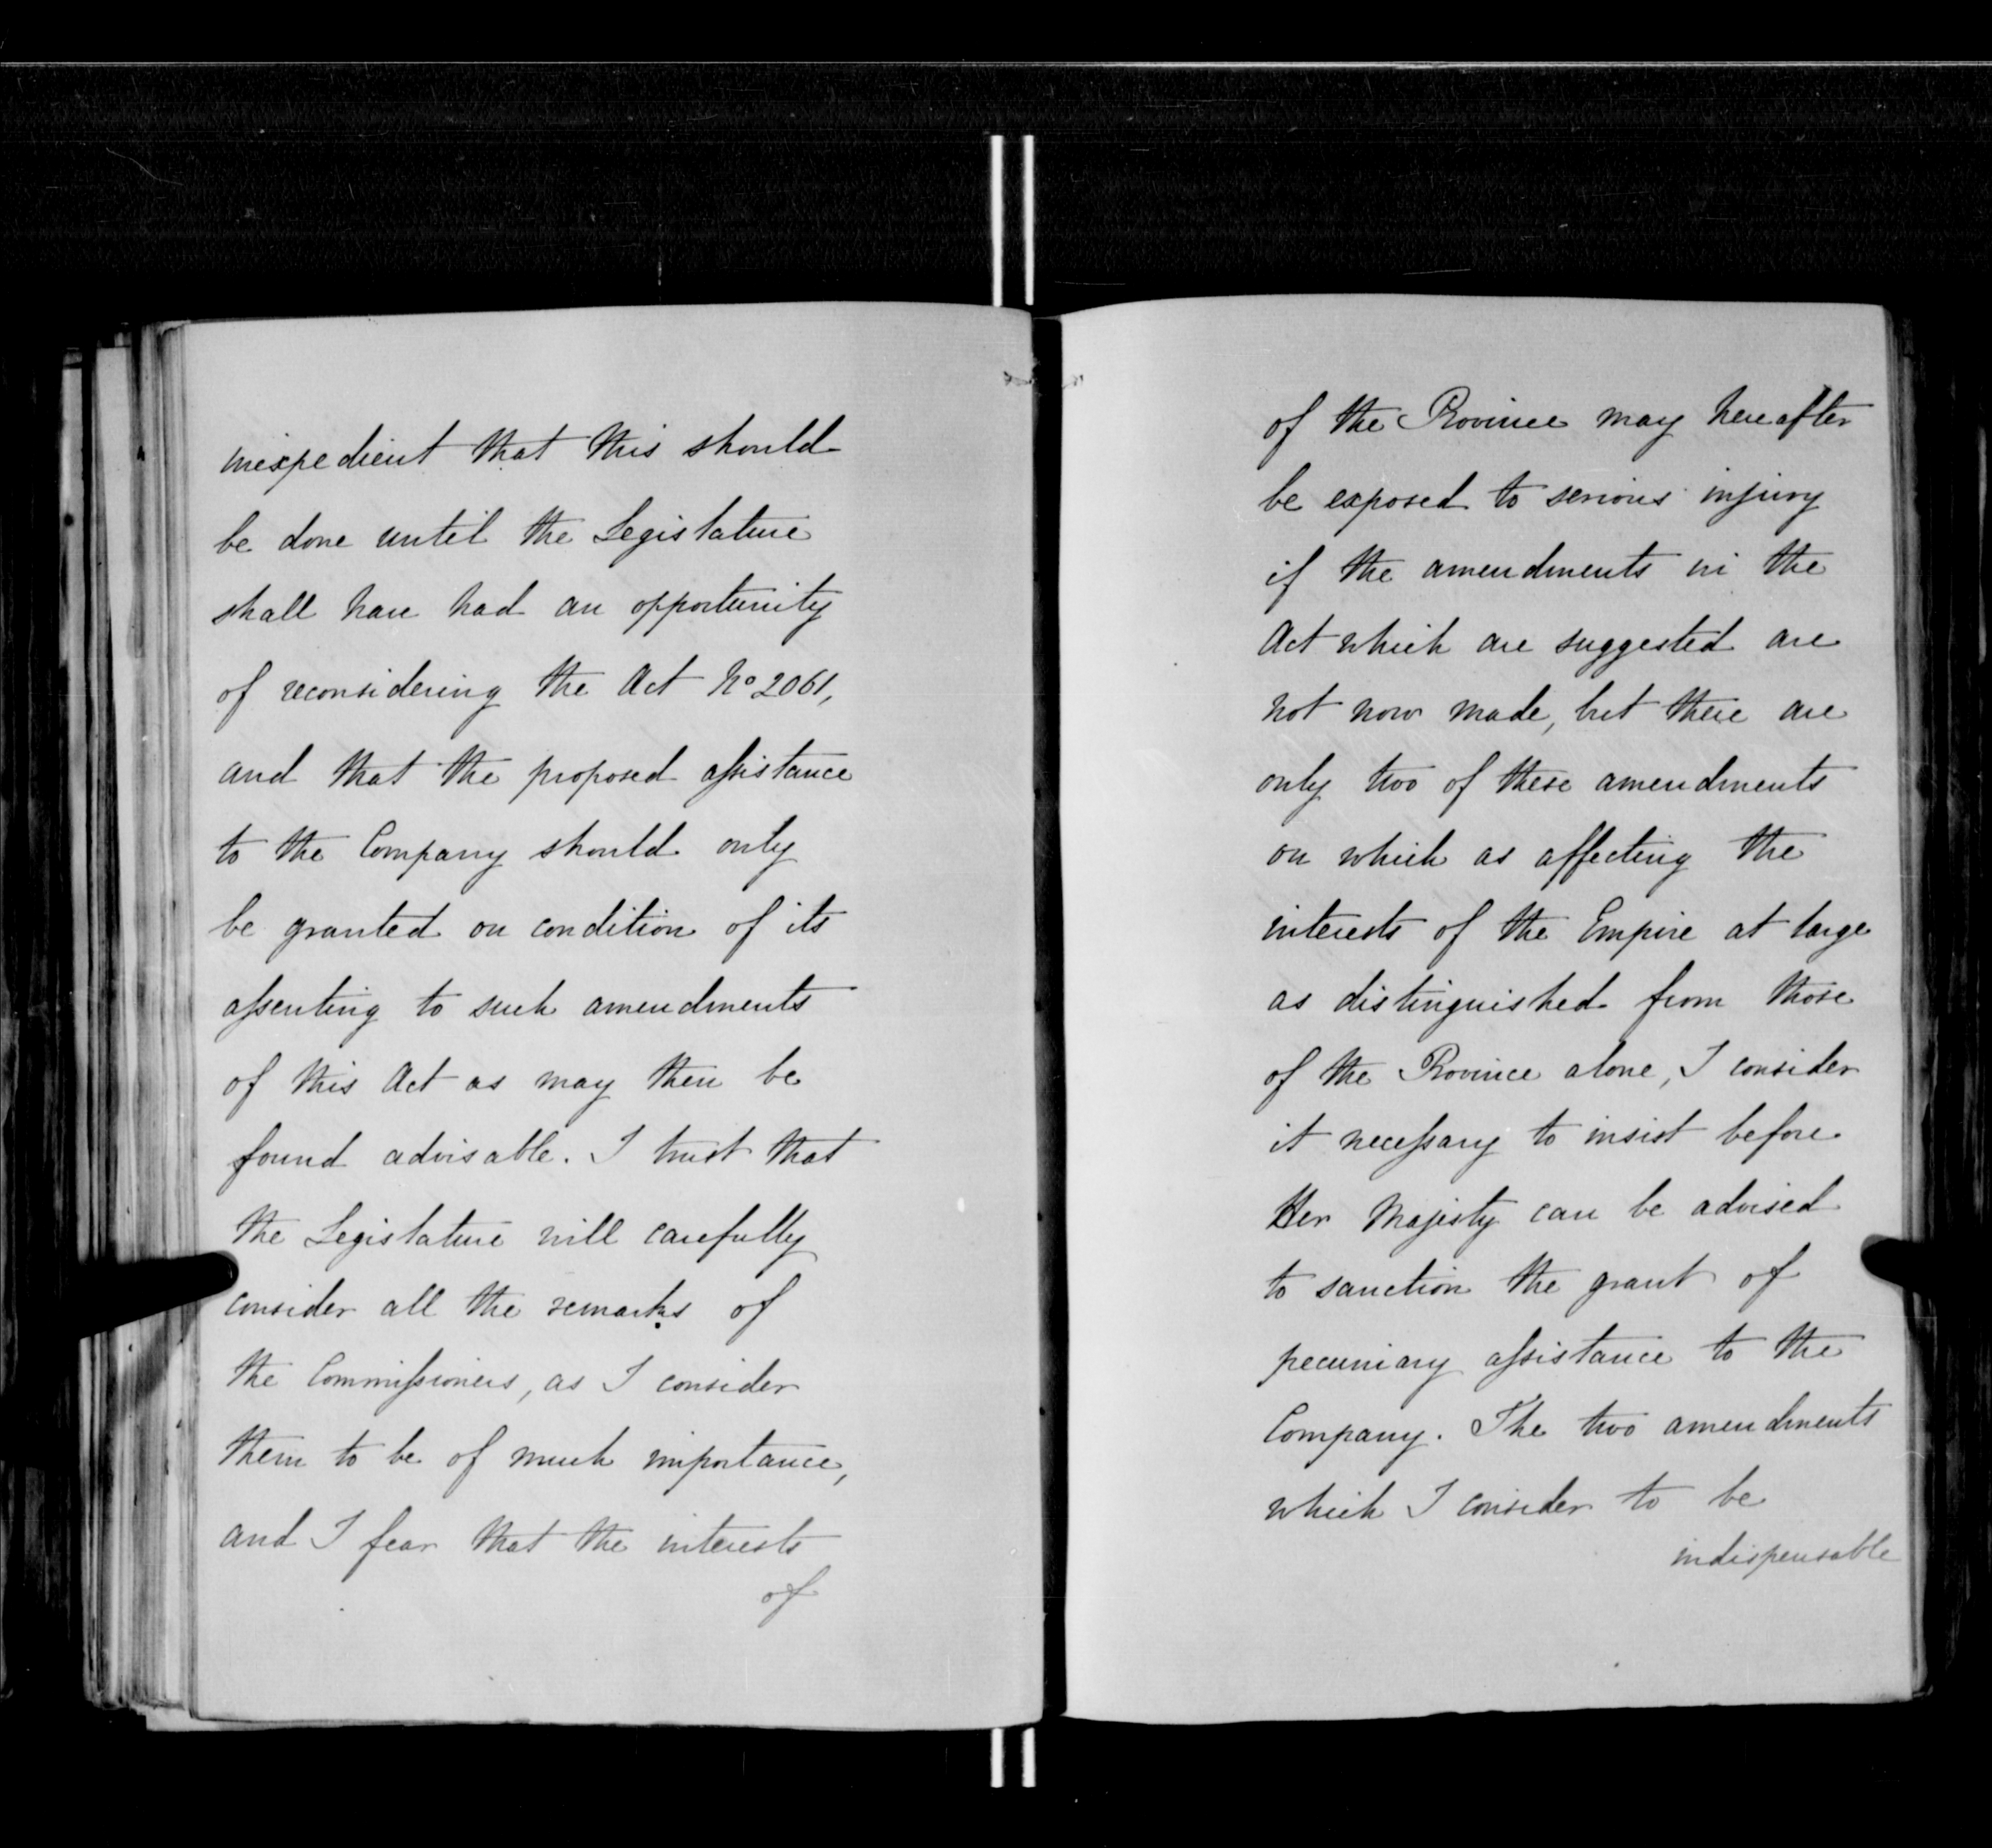 inexpedient that this should
be done until the Legislature
shall have had an opportunity
of reconsidering the Act No 2061,
and that the proposed assistance
to the Company should only
be granted on condition of its
assenting to such amendments
of this Act as may then be
found advisable. I trust that
the Legislature will carefully
consider all the remarks of
the Commissioners, as I consider
them to be of much importance,
and I fear that the interests
of
of the Province may hereafter
be exposed to serious injury
if the amendments in the
Act which are suggested are
not now made, but there are
only two of these amendments
on which as affecting the
interests of the Empire at large
as distinguished from those
of the Province alone, I consider
it necessary to insist before
Her Majesty can be advised
to sanction the grant of
pecuniary assistance to the
Company. The two amendments
which I consider to be
indispensable